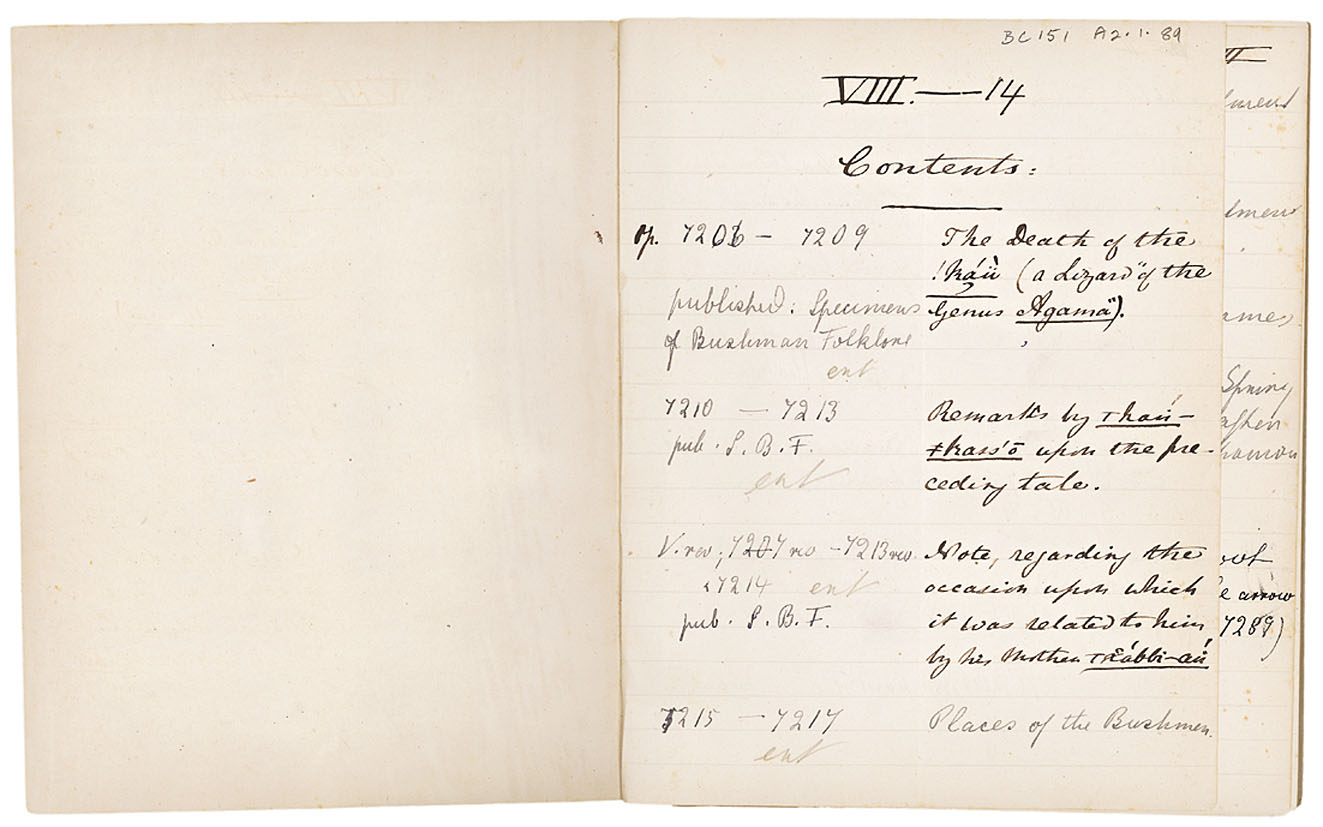 BC151 A2.1.89
VIII.—14
Contents:
op. 7206 – 7209 The Death of the
!káü (a Lizard "of the
published: Specimens Genus Agama").
of Bushman Folklore
ent
7210 — 7213 Remarks by ǀhaṅ-
pub. S.B.F. ǂkass'ō upon the pre-
ent ceding tale.
V. rev; 7207 rev – 7213 rev. Note, regarding the
&7214 ent occasion upon which
pub. S.B.F. it was related to him
by his Mother ǀXábbi-aṅ
7215 — 7217 Places of the Bushmen.
ent
Spring
e arrow
7289)